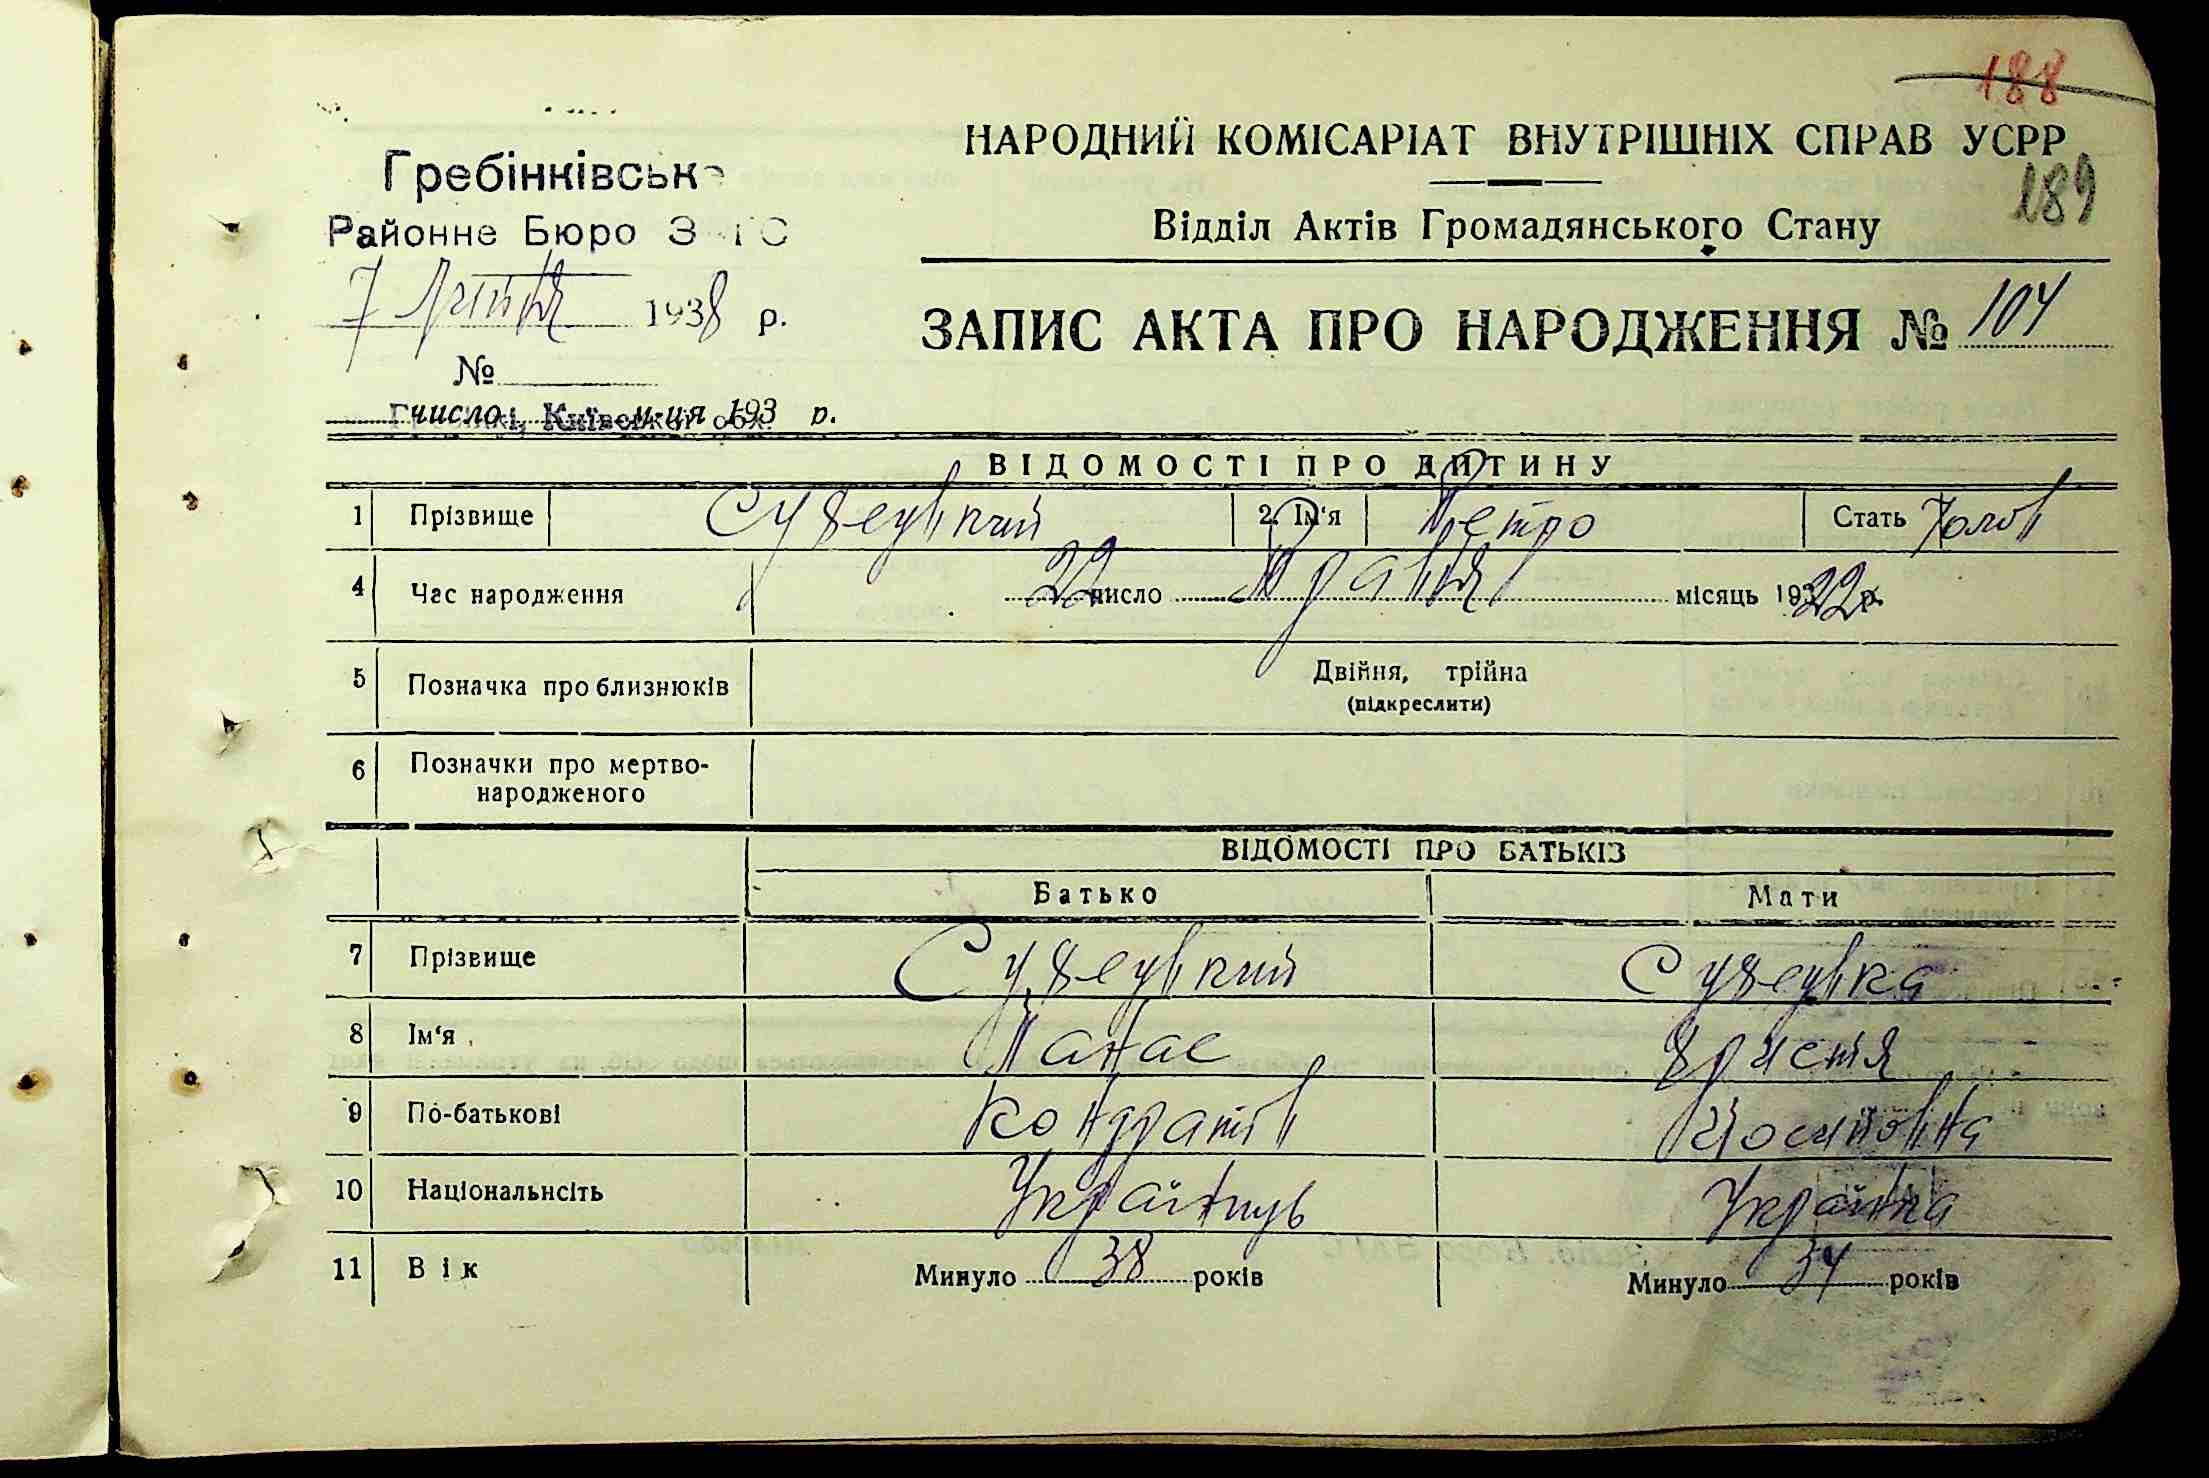 188
НАРОДНИЙ КОМІСАРІАТ ВНУТРІШНІХ СПРАВ УСРР
189
Відділ Актів Громадянського Стану
Гребінківське
Районне Бюро ЗАГС
7 1938 р.
№
ЗАПИС АКТА ПРО НАРОДЖЕННЯ № 104
число м-ця 193 р.
Київської обл.
ВІДОМОСТІ ПРО ДИТИНУ
1 Прізвище 2. Ім'я Петро Стать Чолов
4 Час народження 22 число Травня місяць 1922 р.
5 Позначка про близнюків Двійня, трійна
(підкреслити)
6 Позначки про мертво-
народженого
ВІДОМОСТІ ПРО БАТЬКІВ
Батько Мати
7 Прізвище
8 Ім'я Панас Христя
9 По-батькові Кондратів Йосиповна
10 Національнсіть Українць Українка
11 Вік Минуло 38 років Минуло 34 років